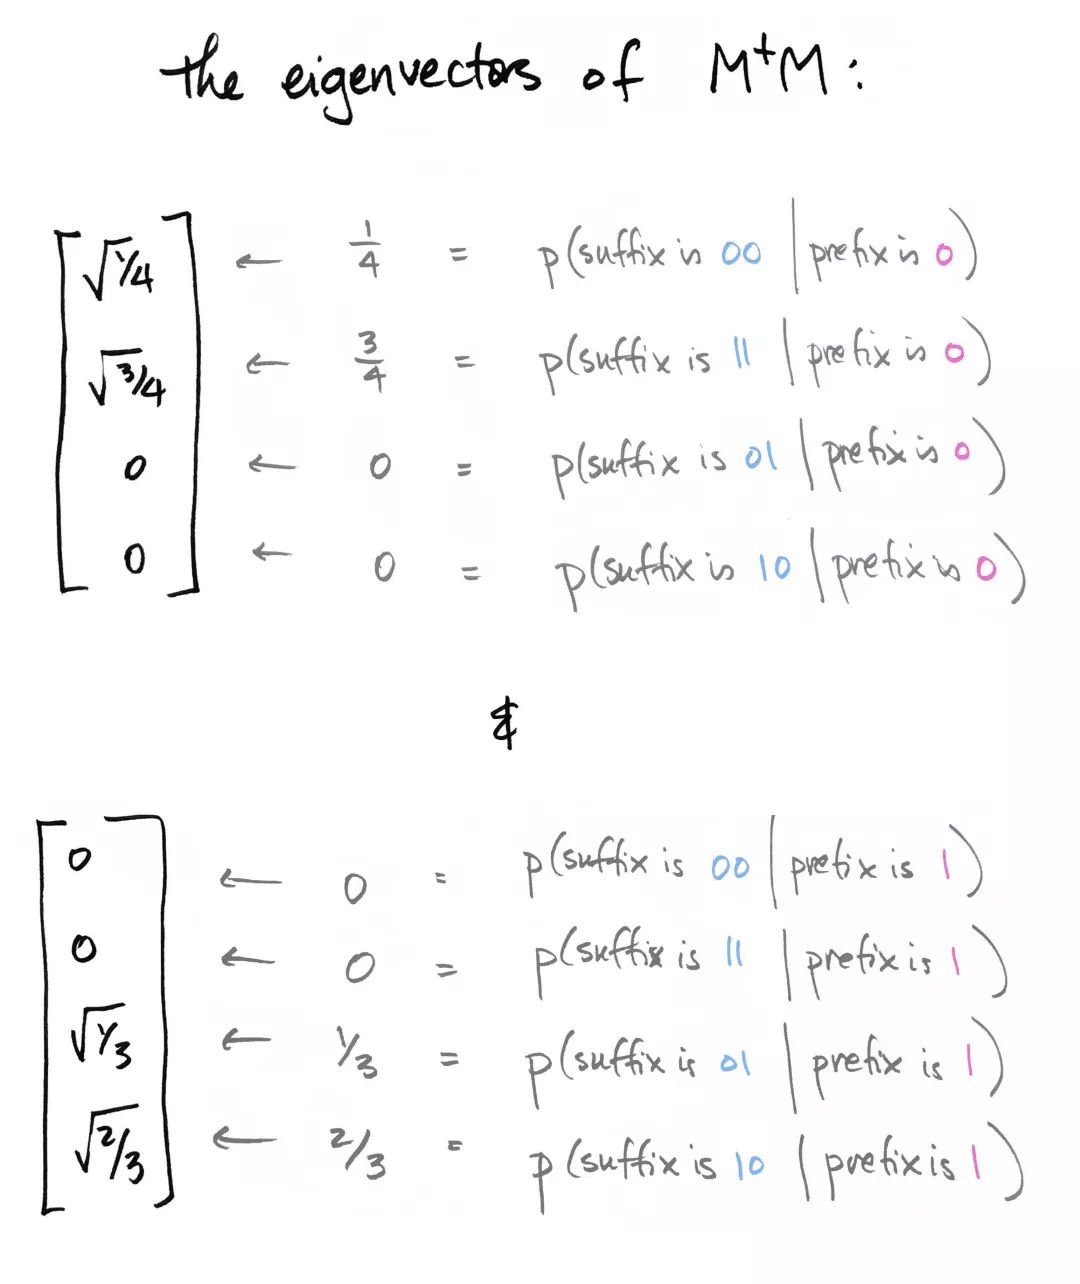 the eigenvectors of M†M:
√1/4 ← 1/4 = p(suffix is 00 | prefix is 0)
√3/4 ← 3/4 = p(suffix is 11 | prefix is 0)
0 ← 0 = p(suffix is 01 | prefix is 0)
0 ← 0 = p(suffix is 10 | prefix is 0)
&
0 ← 0 = p(suffix is 00 | prefix is 1)
0 ← 0 = p(suffix is 11 | prefix is 1)
√1/3 ← 1/3 = p(suffix is 01 | prefix is 1)
√2/3 ← 2/3 = p(suffix is 10 | prefix is 1)